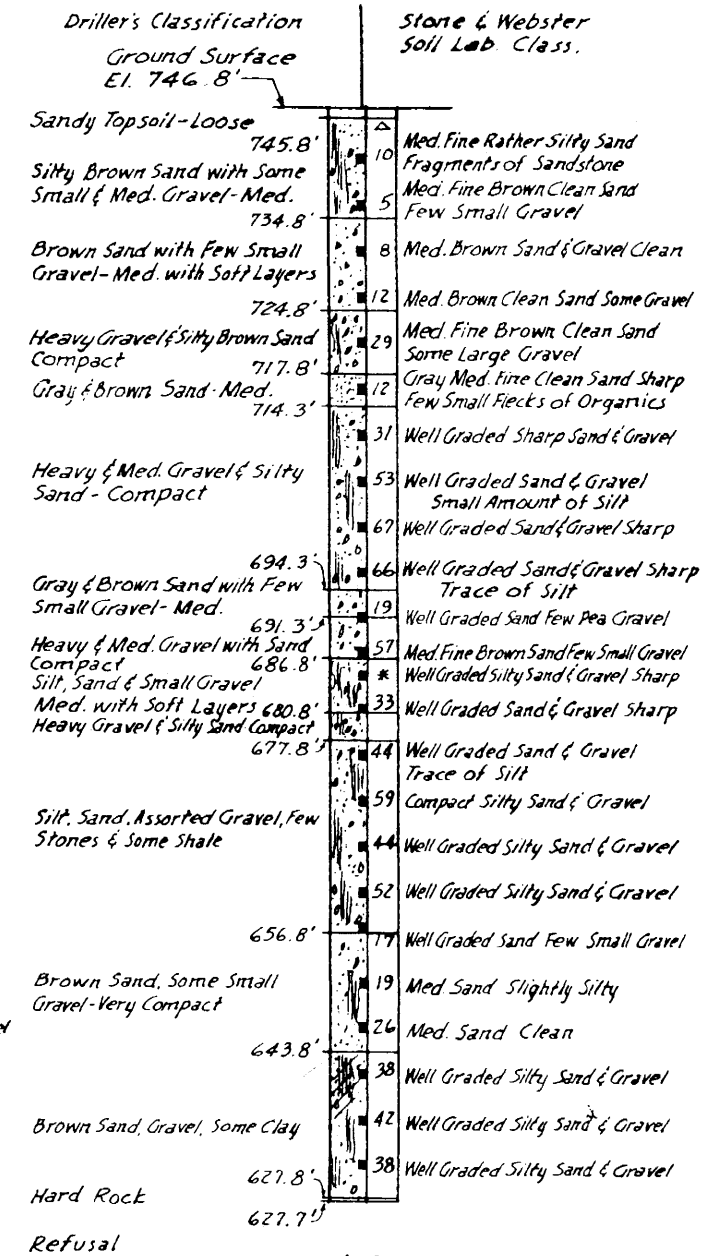 Driller's Classification
Stone & Webster
Soil Lab. Class.
Ground Surface
El. 746.8'
Sandy Topsoil-Loose
745.8'
Silty Brown Sand with Some
Small & Med. Gravel-Med.
734.8'
Brown Sand with Few Small
Gravel-Med. with Soft Layers
724.8'
Heavy Gravel & Silty Brown Sand
Compact
717.8'
Gray & Brown Sand-Med.
714.3'
Heavy & Med. Gravel & Silty
Sand - Compact
694.3'
Gray & Brown Sand with Few
Small Gravel-Med.
691.3'
Heavy & Med. Gravel with Sand
Compact 686.8'
Silt, Sand & Small Gravel
Med. with Soft Layers 680.8'
Heavy Gravel & Silty Sand Compact
677.8'
Silt, Sand, Assorted Gravel, Few
Stones & Some Shale
656.8'
Brown Sand, Some Small
Gravel-Very Compact
643.8'
Brown Sand, Gravel, Some Clay
627.8'
Hard Rock
627.7'
Refusal
Δ
10 Med. Fine Rather Silty Sand
Fragments of Sandstone
5 Med. Fine Brown Clean Sand
Few Small Gravel
8 Med. Brown Sand & Gravel Clean
12 Med. Brown Clean Sand Some Gravel
29 Med. Fine Brown Clean Sand
Some Large Gravel
12 Gray Med. Fine Clean Sand Sharp
Few Small Flecks of Organics
31 Well Graded Sharp Sand & Gravel
53 Well Graded Sand & Gravel
Small Amount of Silt
67 Well Graded Sand & Gravel Sharp
66 Well Graded Sand & Gravel Sharp
Trace of Silt
19 Well Graded Sand Few Pea Gravel
57 Med. Fine Brown Sand Few Small Gravel
* Well Graded Silty Sand & Gravel Sharp
33 Well Graded Sand & Gravel Sharp
44 Well Graded Sand & Gravel
Trace of Silt
59 Compact Silty Sand & Gravel
44 Well Graded Silty Sand & Gravel
52 Well Graded Silty Sand & Gravel
17 Well Graded Sand Few Small Gravel
19 Med. Sand Slightly Silty
26 Med. Sand Clean
38 Well Graded Silty Sand & Gravel
42 Well Graded Silty Sand & Gravel
38 Well Graded Silty Sand & Gravel